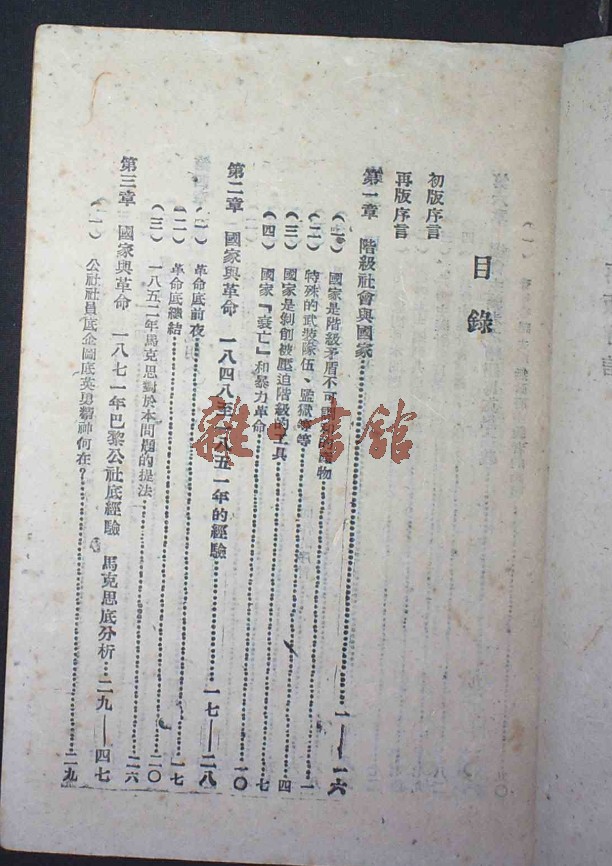 目錄
初版序言
再版序言
第一章 階級社會與國家……一——一六
(一) 國家是階級矛盾不可調和的產物……一
(二) 特殊的武裝隊伍、監獄等等……
(三) 國家是剝削被壓迫階級的工具……四
(四) 國家『衰亡』和暴力革命……七
……一〇
第二章 國家與革命 一八四八至一八五一年的經驗……一七——二八
(一) 革命底前夜……一七
(二) 革命底總結……二〇
(三) 一八五二年馬克思對於本問題的提法……二六
第三章 國家與革命 一八七一年巴黎公社底經驗 馬克思底分析…二九——四七
(一) 公社社員底企圖底英勇精神何在?……二九
雜·書館